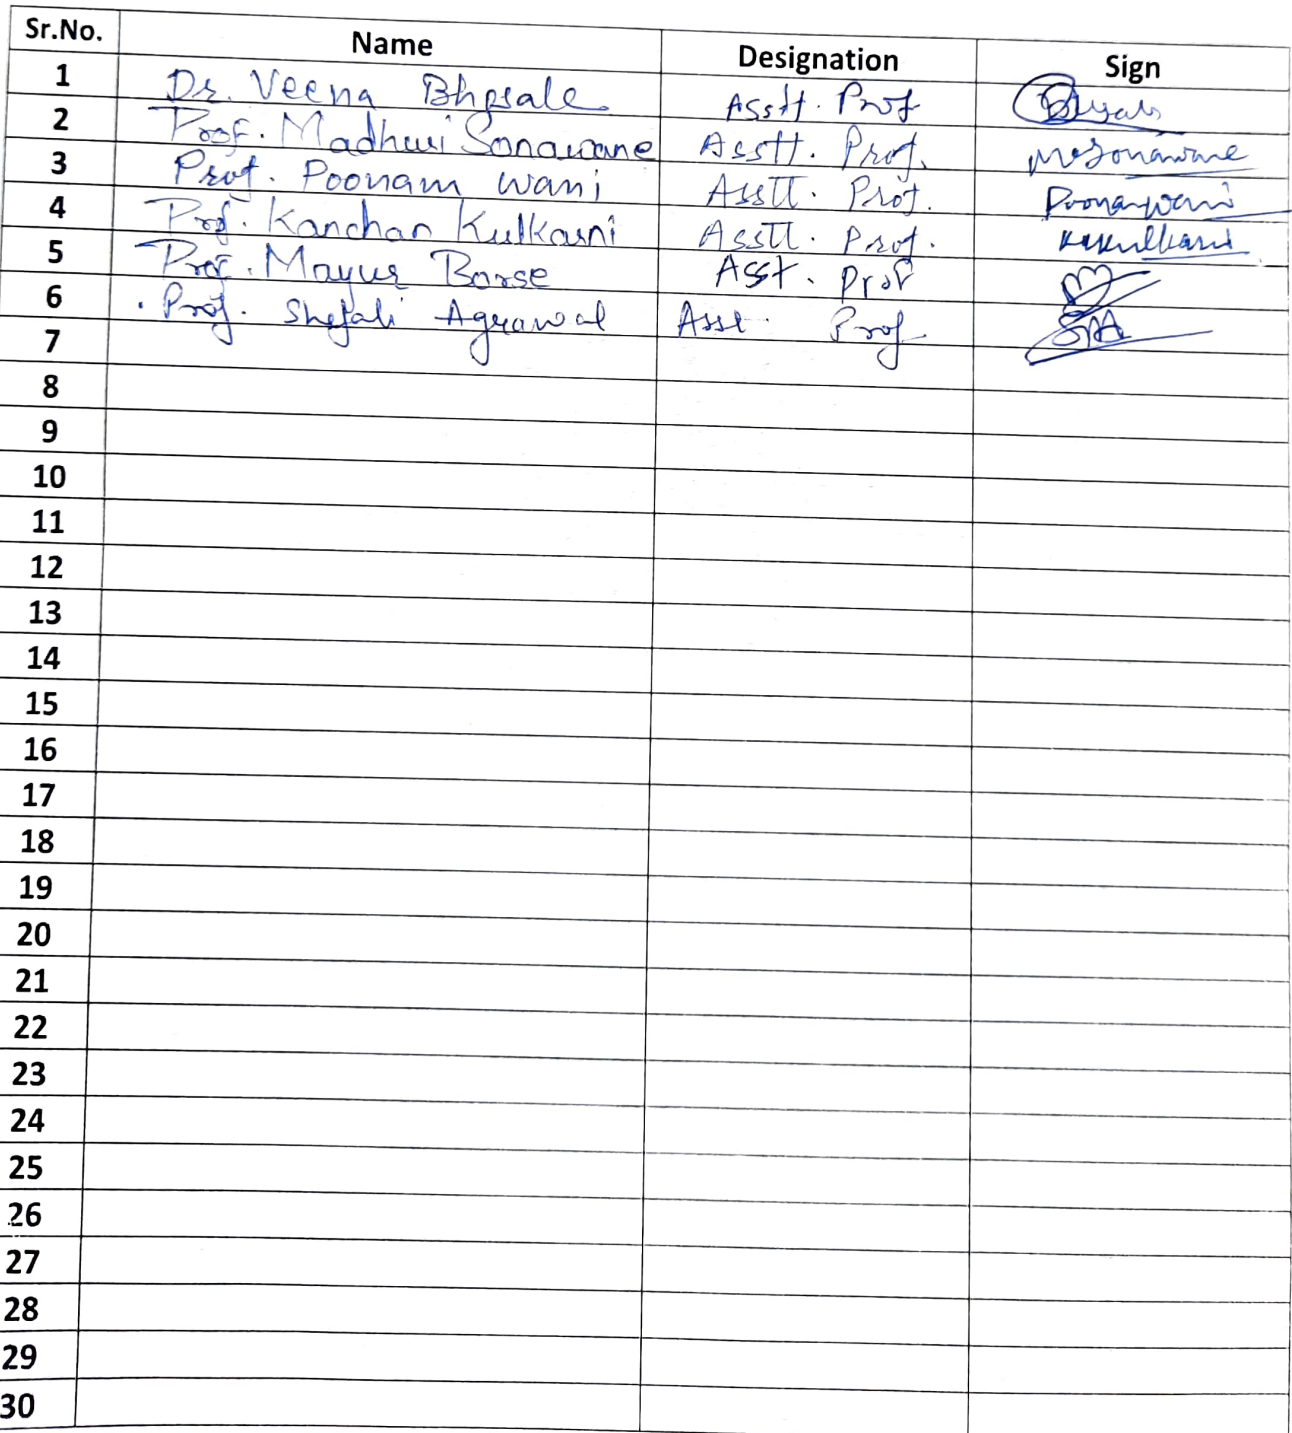 Sr.No. Name Designation Sign
1 Dr. Veena Bhosale Asstt. Prof
2 Prof. Madhuri Sonawane Asstt. Prof. Mesonawane
3 Prof. Poonam Wani Asstt. Prof. Poonamwani
4 Prof. Kanchan Kulkarni Asstt. Prof. kkkulkarni
5 Prof. Mayur Borse Asst. Prof
6 Prof. Shefali Agrawal Asst. Prof.
7
8
9
10
11
12
13
14
15
16
17
18
19
20
21
22
23
24
25
26
27
28
29
30